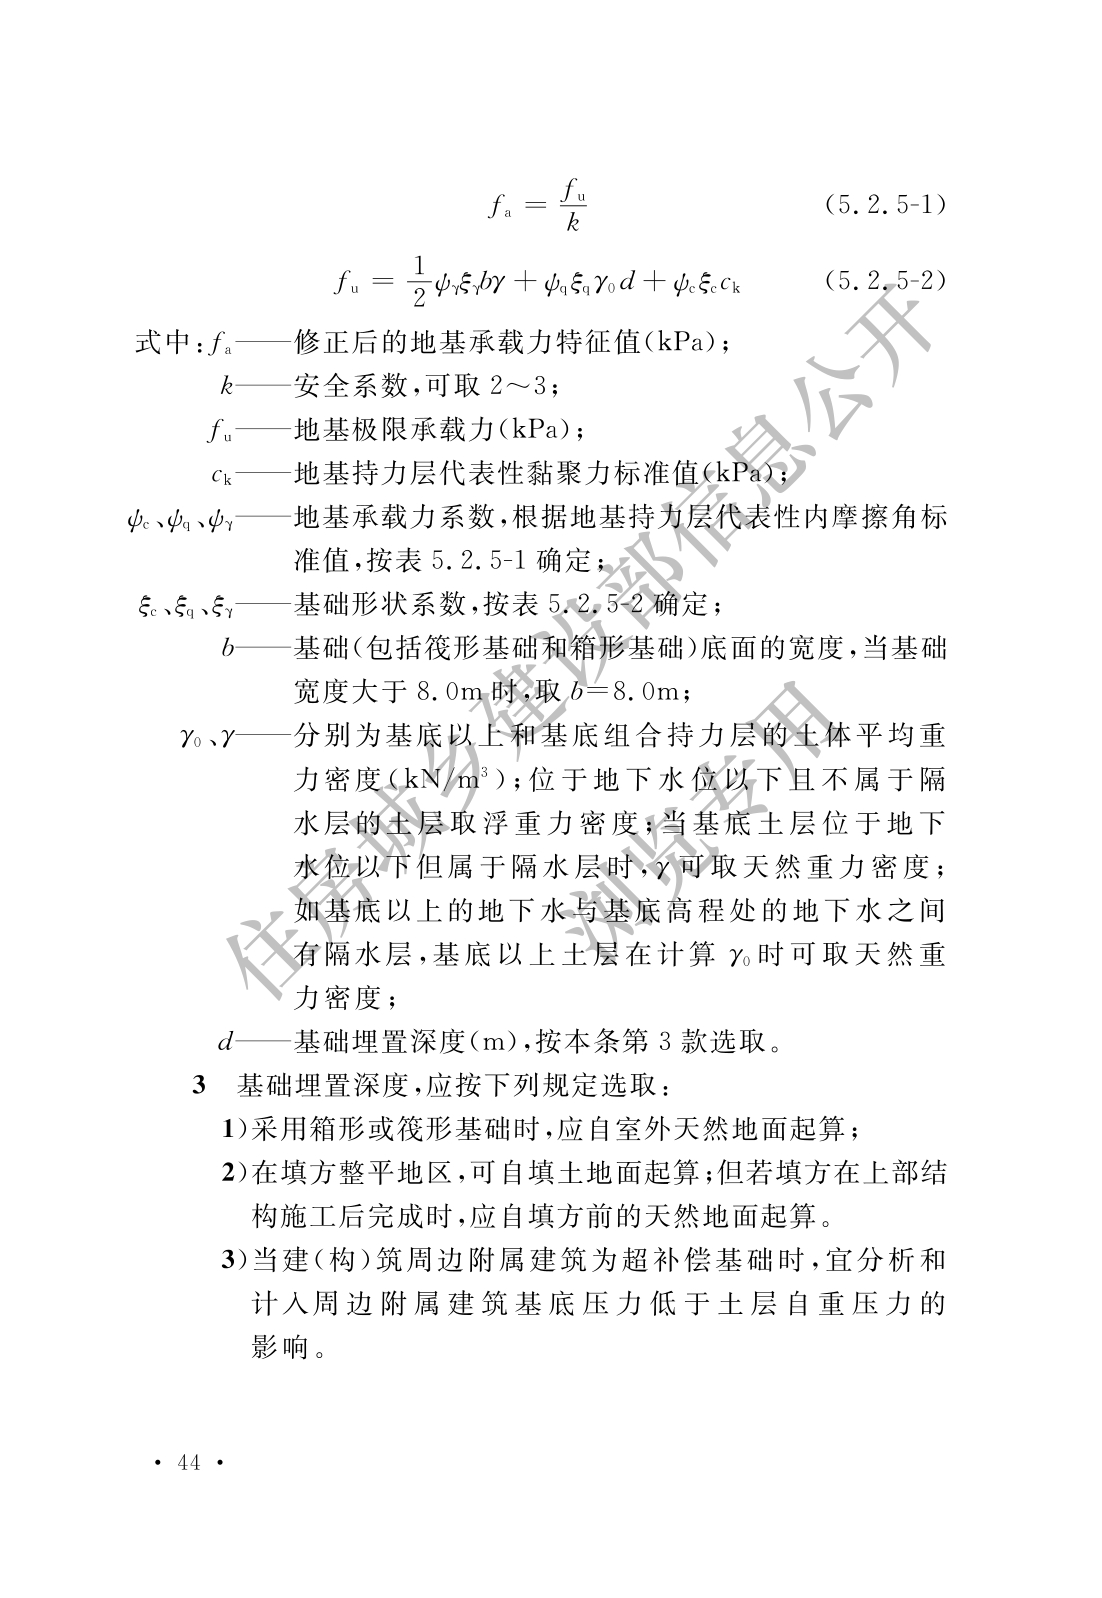 f_a = f_u/k (5.2.5-1)
f_u = 1/2 ψ_γ ξ_γ bγ + ψ_q ξ_q γ_0 d + ψ_c ξ_c c_k (5.2.5-2)
式中:f_a——修正后的地基承载力特征值(kPa);
k——安全系数,可取 2～3;
f_u——地基极限承载力(kPa);
c_k——地基持力层代表性黏聚力标准值(kPa);
ψ_c、ψ_q、ψ_γ——地基承载力系数,根据地基持力层代表性内摩擦角标
准值,按表 5.2.5-1 确定;
ξ_c、ξ_q、ξ_γ——基础形状系数,按表 5.2.5-2 确定;
b——基础(包括筏形基础和箱形基础)底面的宽度,当基础
宽度大于 8.0m 时,取 b=8.0m;
γ_0、γ——分别为基底以上和基底组合持力层的土体平均重
力密度(kN/m³);位于地下水位以下且不属于隔
水层的土层取浮重力密度;当基底土层位于地下
水位以下但属于隔水层时,γ 可取天然重力密度;
如基底以上的地下水与基底高程处的地下水之间
有隔水层,基底以上土层在计算 γ_0 时可取天然重
力密度;
d——基础埋置深度(m),按本条第 3 款选取。
3 基础埋置深度,应按下列规定选取:
1)采用箱形或筏形基础时,应自室外天然地面起算;
2)在填方整平地区,可自填土地面起算;但若填方在上部结
构施工后完成时,应自填方前的天然地面起算。
3)当建(构)筑周边附属建筑为超补偿基础时,宜分析和
计入周边附属建筑基底压力低于土层自重压力的
影响。
· 44 ·
住房城乡建设部信息公开
浏览专用